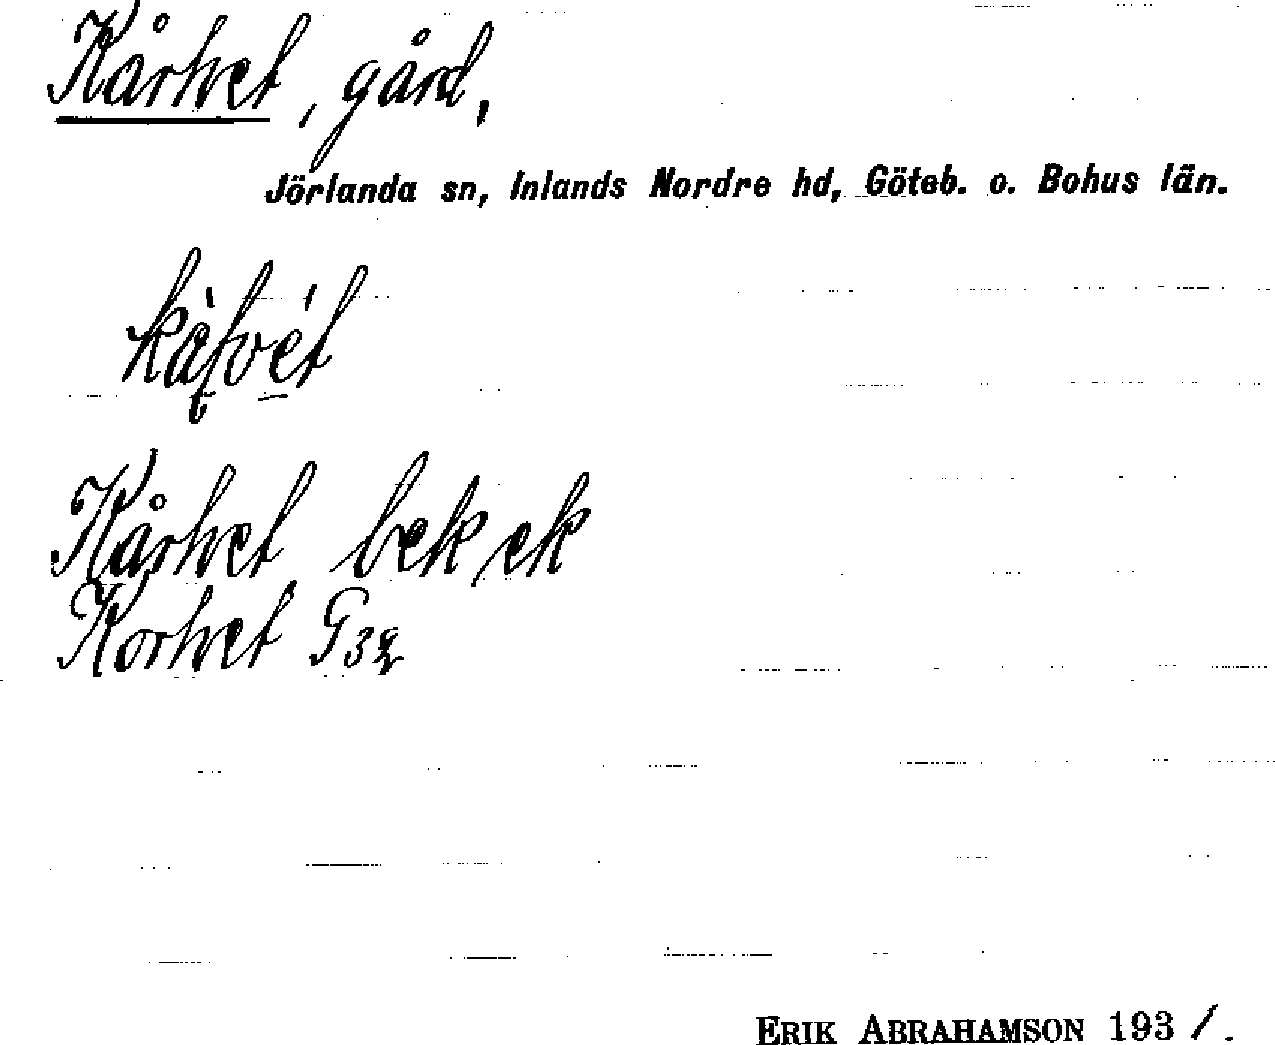 Kårhvet, gård,
Jörlanda sn, Inlands Nordre hd, Göteb. o. Bohus län.
Kårhvet bek ek
Korhvet G32
ERIK ABRAHAMSON 1931.